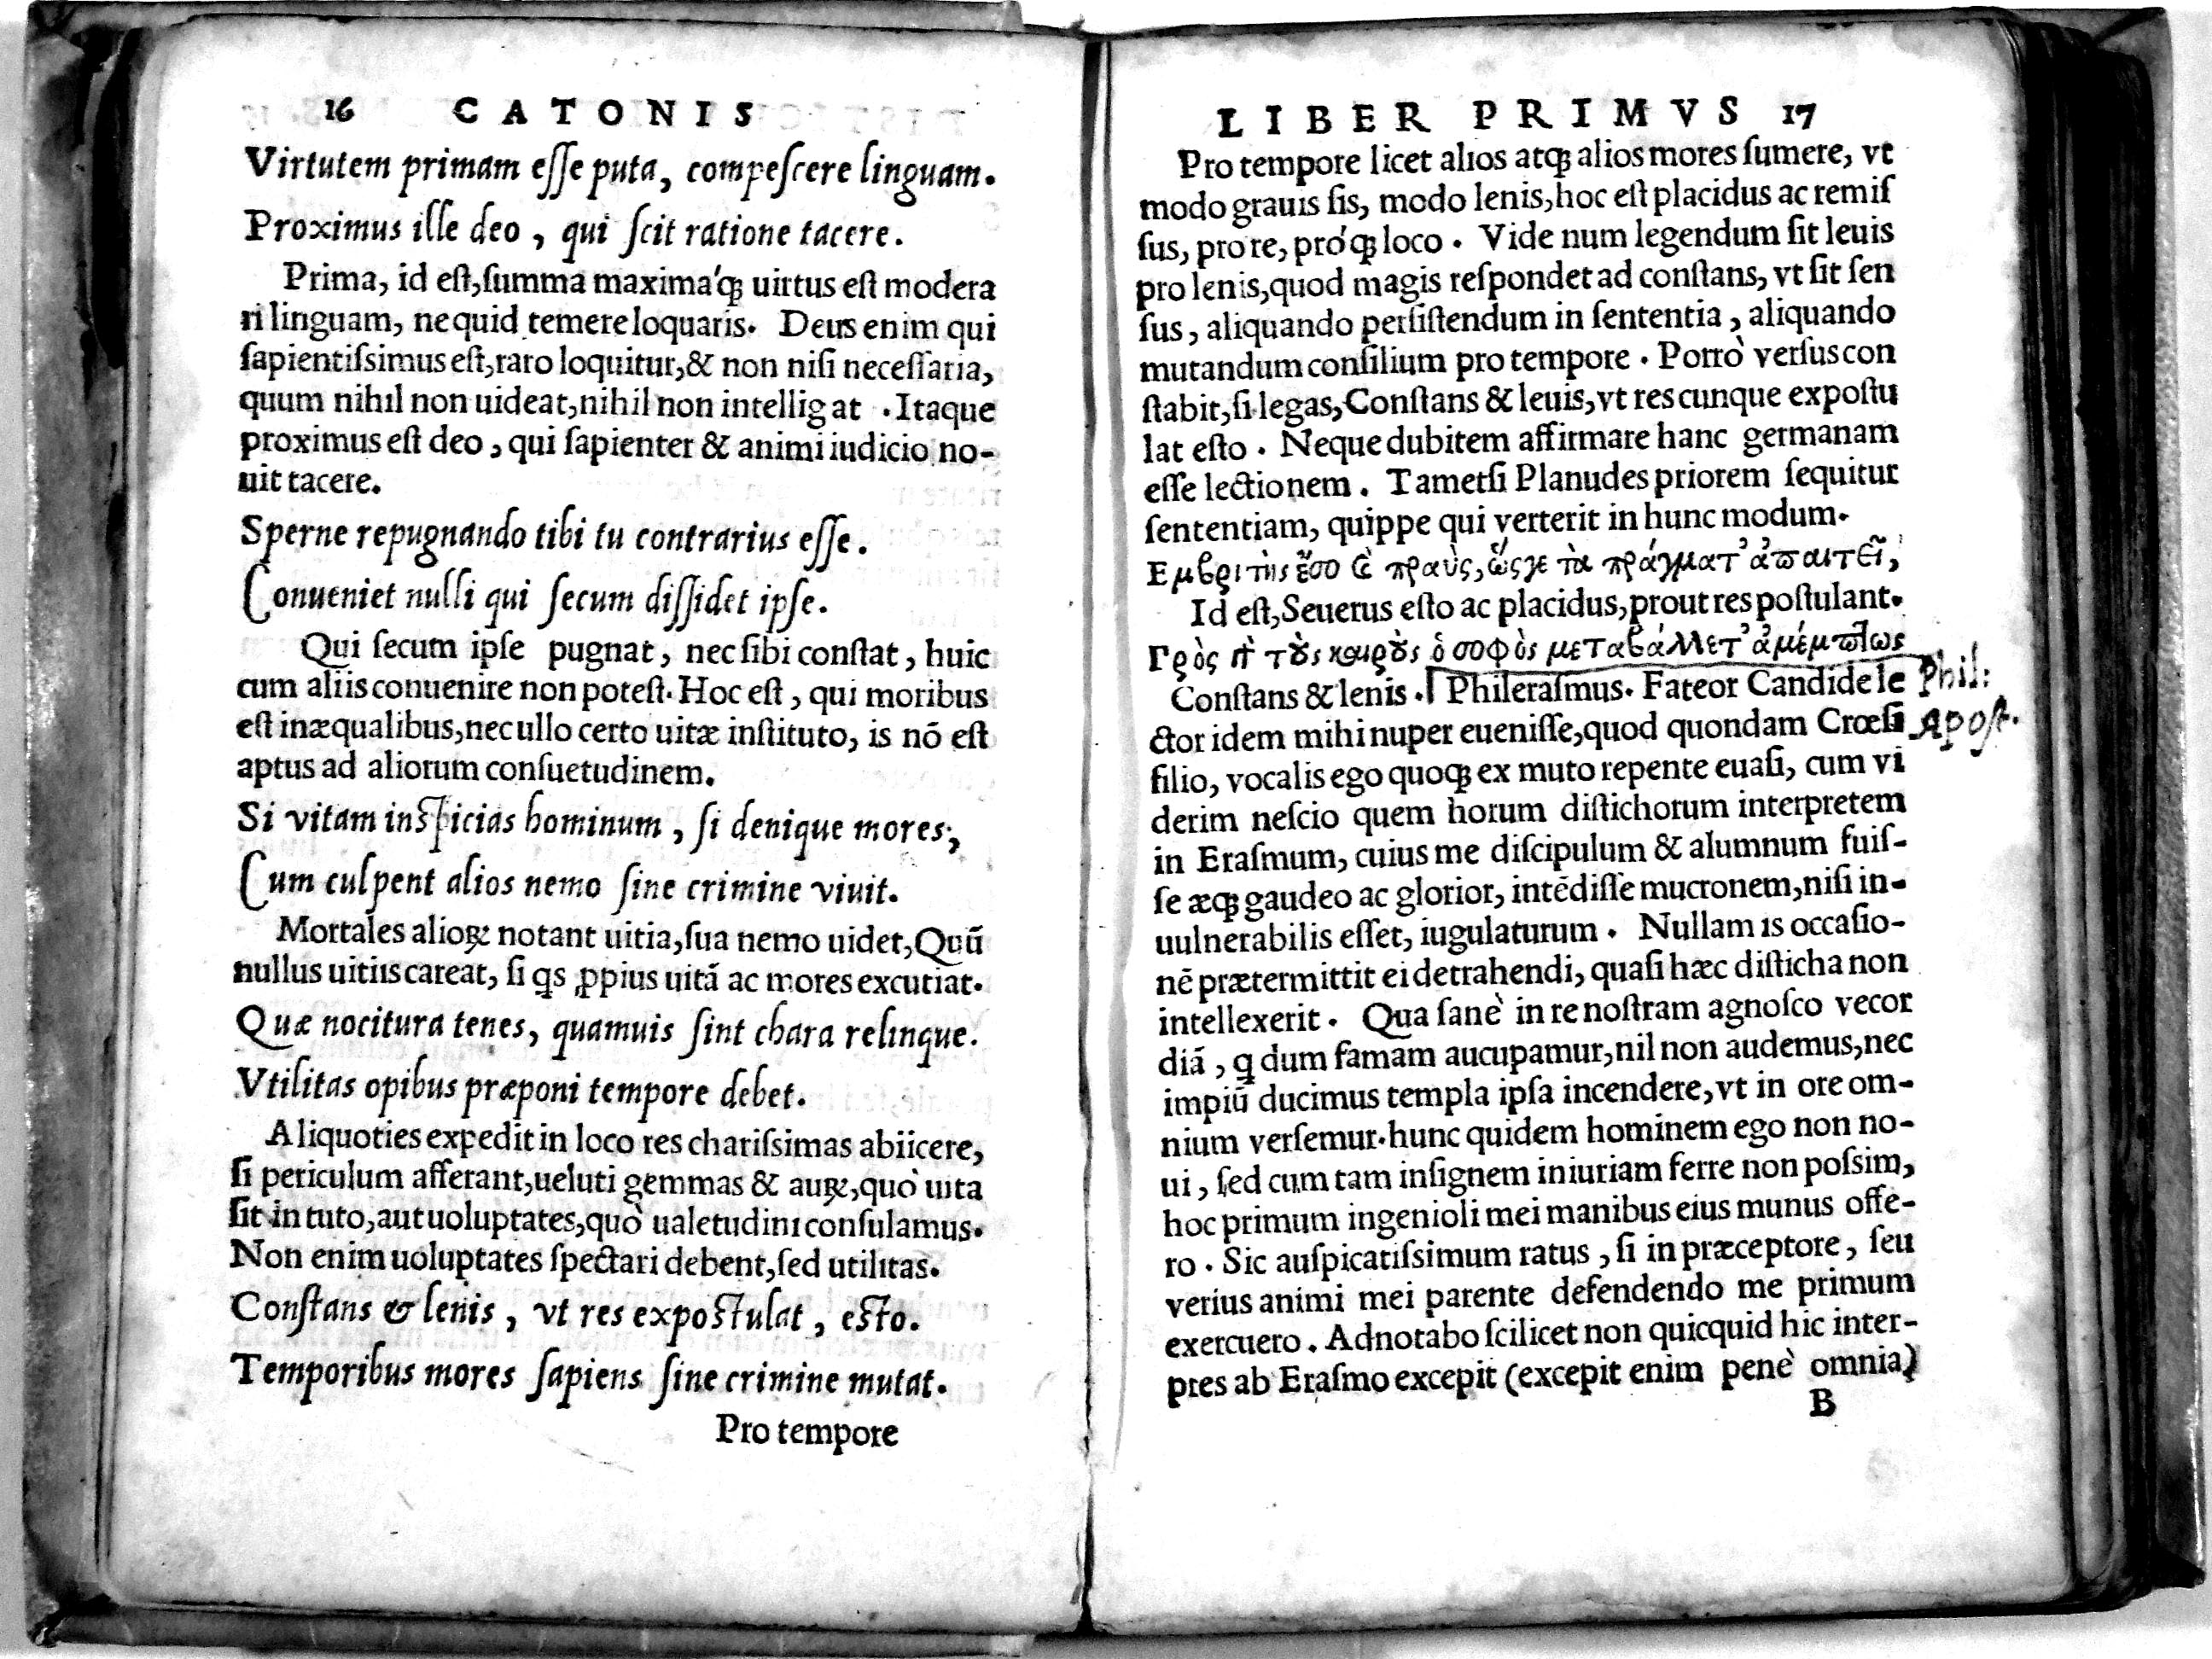 16 CATONIS
Virtutem primam eſſe puta, compeſcere linguam.
Proximus ille deo, qui ſcit ratione tacere.
Prima, id eſt, ſumma maximaq́ꝫ uirtus eſt modera
ri linguam, ne quid temere loquaris. Deus enim qui
ſapientiſsimus eſt, raro loquitur, & non niſi neceſſaria,
quum nihil non uideat, nihil non intelligat. Itaque
proximus eſt deo, qui ſapienter & animi iudicio no-
uit tacere.
Sperne repugnando tibi tu contrarius eſſe.
Conueniet nulli qui ſecum diſſidet ipſe.
Qui ſecum ipſe pugnat, nec ſibi conſtat, huic
cum aliis conuenire non poteſt. Hoc eſt, qui moribus
eſt inæqualibus, nec ullo certo uitæ inſtituto, is nō eſt
aptus ad aliorum conſuetudinem.
Si vitam inſpicias hominum, ſi denique mores,
Cum culpent alios nemo ſine crimine viuit.
Mortales alioꝝ notant uitia, ſua nemo uidet, Quū
nullus uitiis careat, ſi qs ꝓpius uitā ac mores excutiat.
Quæ nocitura tenes, quamuis ſint chara relinque.
Vtilitas opibus præponi tempore debet.
Aliquoties expedit in loco res chariſsimas abiicere,
ſi periculum afferant, ueluti gemmas & auꝝ, quò uita
ſit in tuto, aut uoluptates, quò ualetudini conſulamus.
Non enim uoluptates ſpectari debent, ſed utilitas.
Conſtans & lenis, vt res expoſtulat, eſto.
Temporibus mores ſapiens ſine crimine mutat.
Pro tempore
LIBER PRIMVS 17
Pro tempore licet alios atqꝫ alios mores ſumere, vt
modo grauis ſis, modo lenis, hoc eſt placidus ac remiſ
ſus, pro re, pró qꝫ loco. Vide num legendum ſit leuis
pro lenis, quod magis reſpondet ad conſtans, vt ſit ſen
ſus, aliquando perſiſtendum in ſententia, aliquando
mutandum conſilium pro tempore. Porrò verſus con
ſtabit, ſi legas, Conſtans & leuis, vt res cunque expoſtu
lat eſto. Neque dubitem affirmare hanc germanam
eſſe lectionem. Tametſi Planudes priorem ſequitur
ſententiam, quippe qui verterit in hunc modum.
Εμβριτὴς ἔσο ϗ πραὺς, ὥς γε τὰ πράγματ' ἀπαιτεῖ,
Id eſt, Seuerus eſto ac placidus, prout res poſtulant.
Γρὸς τοὺς καιροὺς ὁ σοφὸς μεταβάλλετ' ἀμέμπτως
Conſtans & lenis. Phileraſmus. Fateor Candide le
ctor idem mihi nuper eueniſſe, quod quondam Crœſi
Phil:
Apoſt.
filio, vocalis ego quoqꝫ ex muto repente euaſi, cum vi
derim neſcio quem horum diſtichorum interpretem
in Eraſmum, cuius me diſcipulum & alumnum fuiſ-
ſe æqꝫ gaudeo ac glorior, intēdiſſe mucronem, niſi in-
uulnerabilis eſſet, iugulaturum. Nullam is occaſio-
nē prætermittit ei detrahendi, quaſi hæc diſticha non
intellexerit. Qua ſanè in re noſtram agnoſco vecor
diā, ꝗ dum famam aucupamur, nil non audemus, nec
impiū ducimus templa ipſa incendere, vt in ore om-
nium verſemur. hunc quidem hominem ego non no-
ui, ſed cum tam inſignem iniuriam ferre non poſsim,
hoc primum ingenioli mei manibus eius munus offe-
ro. Sic auſpicatiſsimum ratus, ſi in præceptore, ſeu
verius animi mei parente defendendo me primum
exercuero. Adnotabo ſcilicet non quicquid hic inter-
pres ab Eraſmo excepit (excepit enim penè omnia)
B